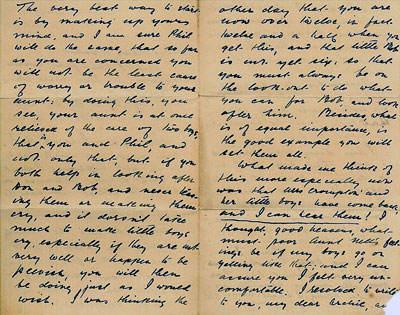 The very best way to start
is by making up your
mind, and I am sure Phil
will do the same, that so far
as you are concerned you
will not be the least cause
of worry or trouble to your
aunt: by doing this, you
see, your aunt is at once
relieved of the care of two boys
that is, you and Phil, and
not only that, but if you
both help in looking after
Don and Bob, and never
ing them or making them
cry, and it doesn't take
much to make little boys
cry, especially if they are not
very well or happen to be
peevish, you will then
be doing just as I would
wish. I was thinking the
other day that you are
now over twelve, in fact
twelve and a half when you
get this, and that little Bob
is not yet six: so that
you must always be on
the look-out to do what
you can for Bob, and look
after him. Besides, what
is of equal importance, is
the good example you will
set them all.
What made me think of
this more especially now
was that Mrs Crompton and
her little boys have come back
and I can hear them! I
thought, good heavens, what
must poor Aunt Nell's feel-
ings be if my boys go on
yelling like that; and I can
assure you I felt very un-
comfortable. I resolved to write
to you, my dear Archie, an